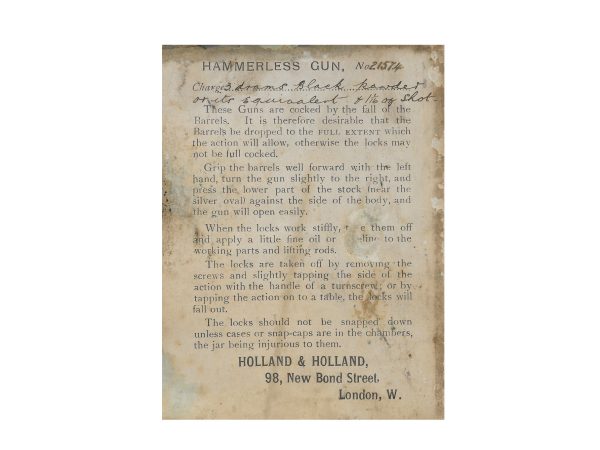 HAMMERLESS GUN, No 21574
Charge 3 drams Black powder
or its equivalent & 1 1/16 oz Shot-
These Guns are cocked by the fall of the
Barrels. It is therefore desirable that the
Barrels be dropped to the FULL EXTENT which
the action will allow, otherwise the locks may
not be full cocked.
Grip the barrels well forward with the left
hand, turn the gun slightly to the right, and
press the lower part of the stock (near the
silver oval) against the side of the body, and
the gun will open easily.
When the locks work stiffly, them off
and apply a little fine oil or to the
working parts and lifting rods.
The locks are taken off by removing the
screws and slightly tapping the side of the
action with the handle of a turnscrew; or by
tapping the action on to a table, the locks will
fall out.
The locks should not be snapped down
unless cases or snap-caps are in the chambers,
the jar being injurious to them.
HOLLAND & HOLLAND,
98, New Bond Street,
London, W.